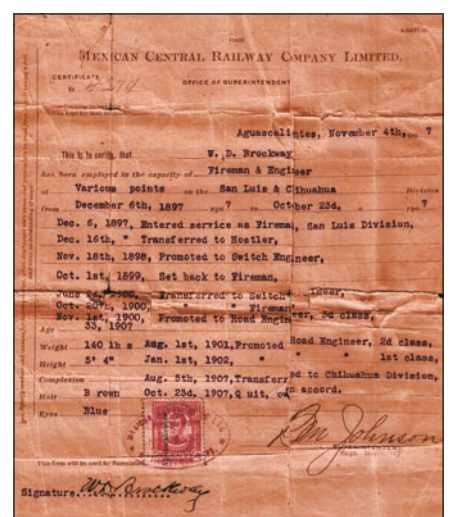 MEXICAN CENTRAL RAILWAY COMPANY LIMITED.
CERTIFICATE
OFFICE OF SUPERINTENDENT
Aguascalintes, November 4th, 190 7
This is to certify, that W. D. Brockway
has been employed in the capacity of Fireman & Engineer
at Various points on the San Luis & Chihuahua Division
from December 6th, 1897 to October 23d, 190 7
Dec. 6, 1897, Entered service as Fireman, San Luis Division,
Dec. 16th, " Transferred to Hostler,
Nov. 18th, 1898, Promoted to Switch Engineer,
Oct. 1st, 1899, Set back to Fireman,
June 2d, 1900, Transferred to Switch
Oct. 20th, 1900, " " Fireman
Nov. 1st, 1900, Promoted to Road Engineer, 3d class,
Age 33, 1907
Weight 140 lb s Aug. 1st, 1901, Promoted Road Engineer, 2d class,
Height 5' 4" Jan. 1st, 1902, " " " 1st class,
Complexion Aug. 5th, 1907, Transferr ed to Chihuahua Division,
Hair B rown Oct. 23d. 1907, Q uit, own accord.
Eyes Blue
Ben Johnson
This form will be used for
Signature. WD Brockway